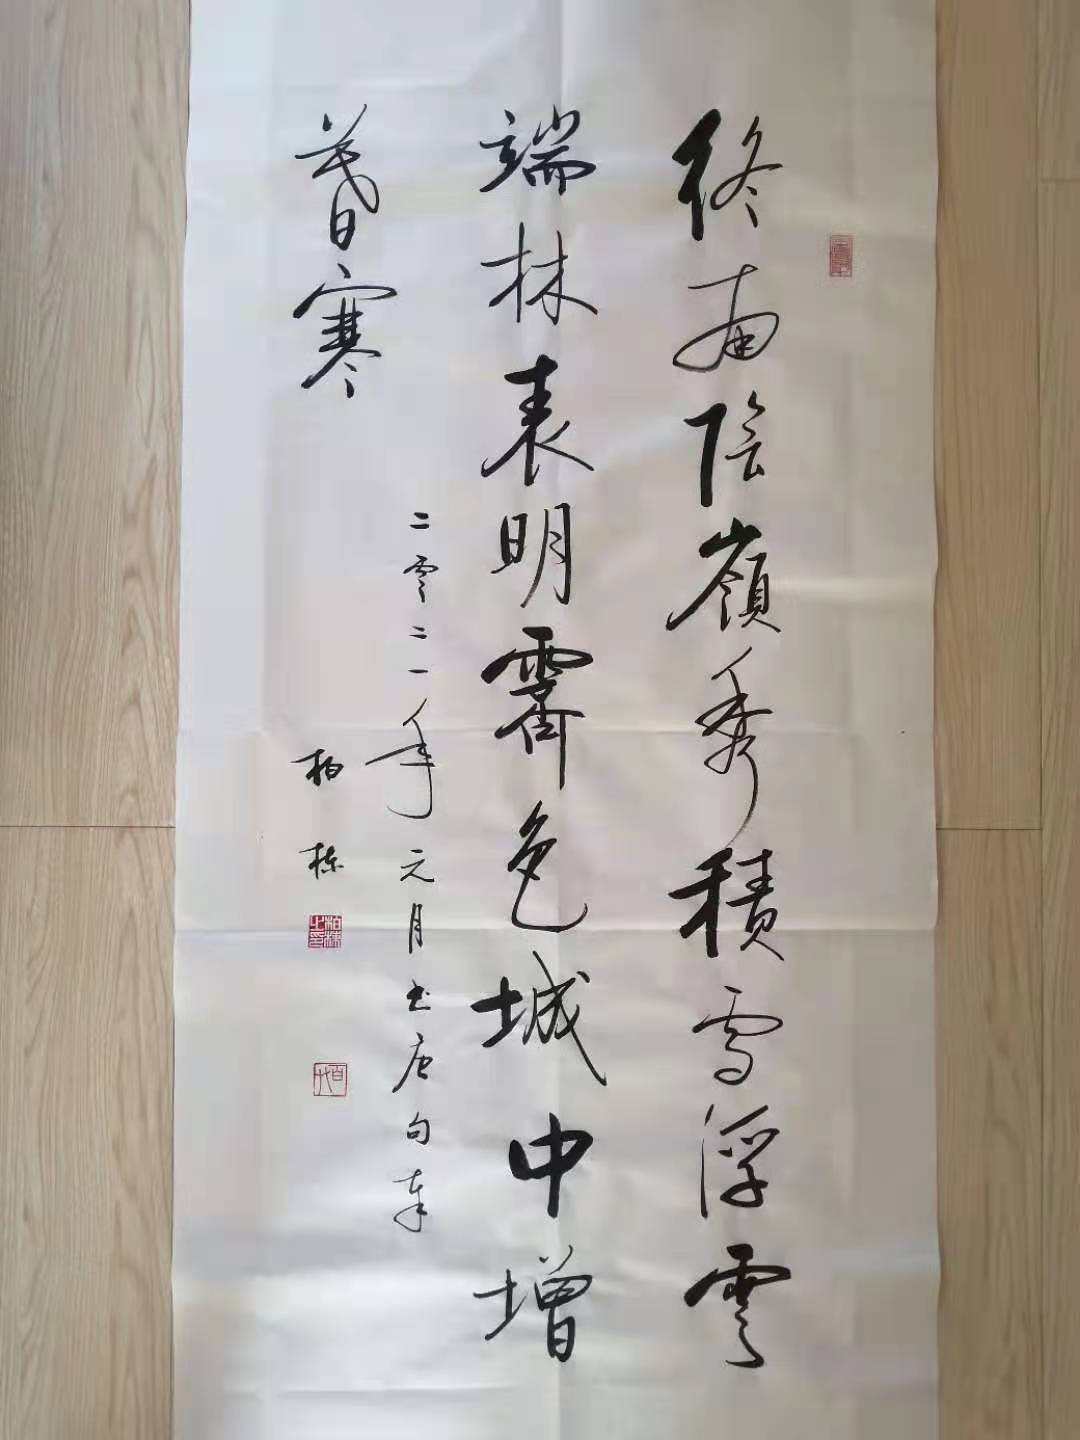 终南陰嶺秀積雪浮雲
端林表明霽色城中增
暮寒
二零二一年元月书唐句
柏栋
柏栋之印